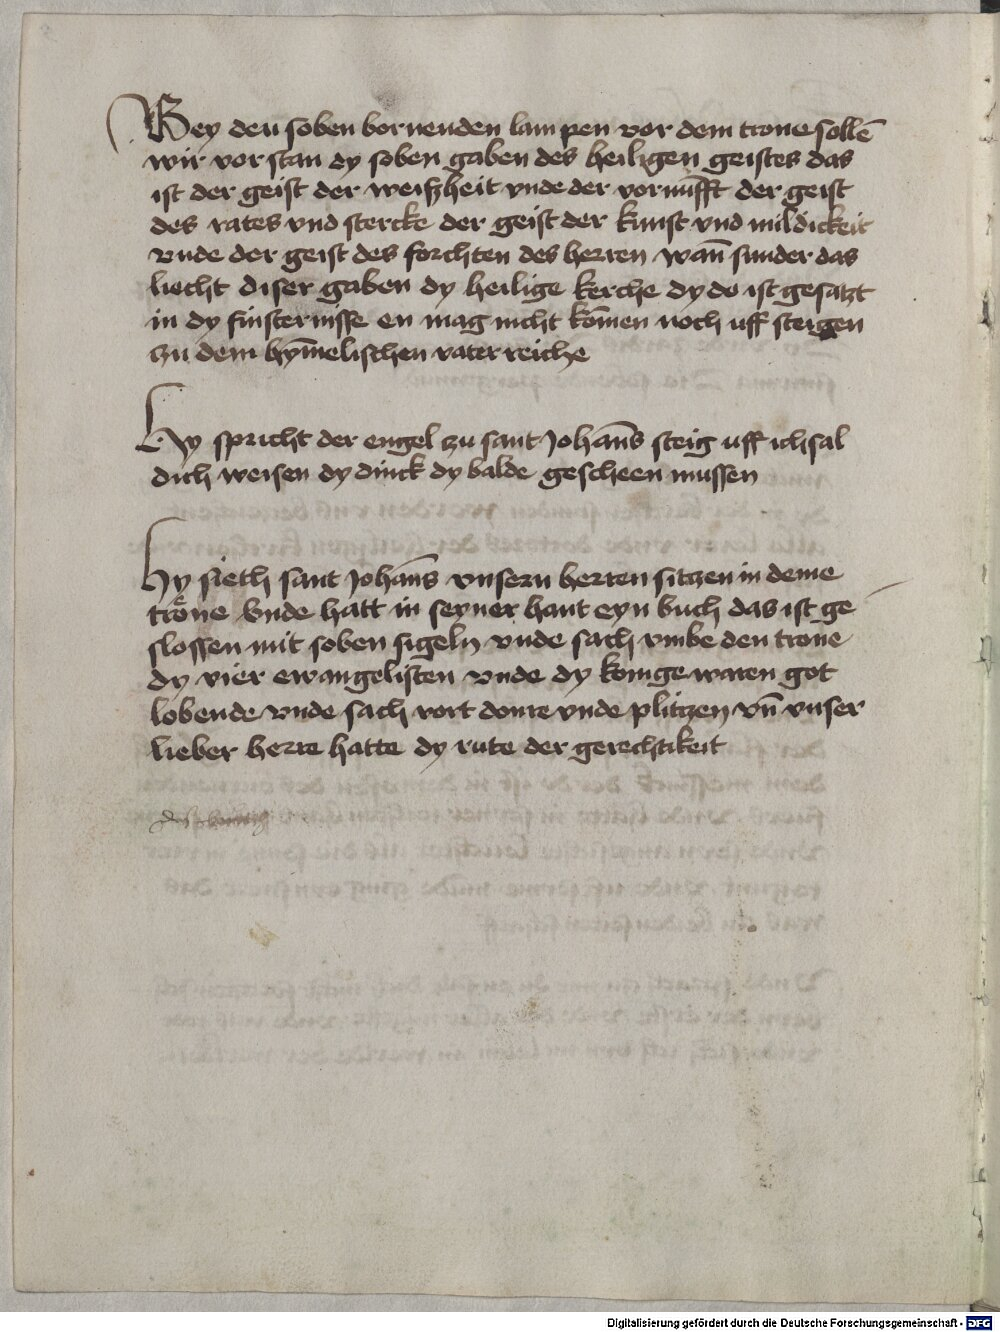 Bey den soben bornenden lampen vor dem trone sollē
wir vorstan dy soben gaben des heiligen geistes das
ist der geist der weißheit vnde der vornūfft der geist
des rates vnd stercke der geist der kunst vnd mildickeit
vnde der geist des forchten des herren wan̄ sunder das
liecht diser gaben dy heilige kerche dy do ist gesatzt
in dy finsternisse en mag nicht kōmen noch uff steigen
zu dem hȳmelischen vater reiche
Hy spricht der engel zu sant Johan̄s steig uff ich sal
dich weisen dy dinck dy balde gescheen mussen
Hy sieth sant Johan̄s vnsern herren sitzen in deme
trone vnde hatt in seyner hant eyn buch das ist ge
slossen mit soben sigeln vnde sach vmbe den trone
dy vier ewangelisten vnde dy konige waren got
lobende vnde sach vort donre vnde plitzen vn̄ vnser
lieber herre hatte dy rute der gerechtikeit
Digitalisierung gefördert durch die Deutsche Forschungsgemeinschaft - DFG